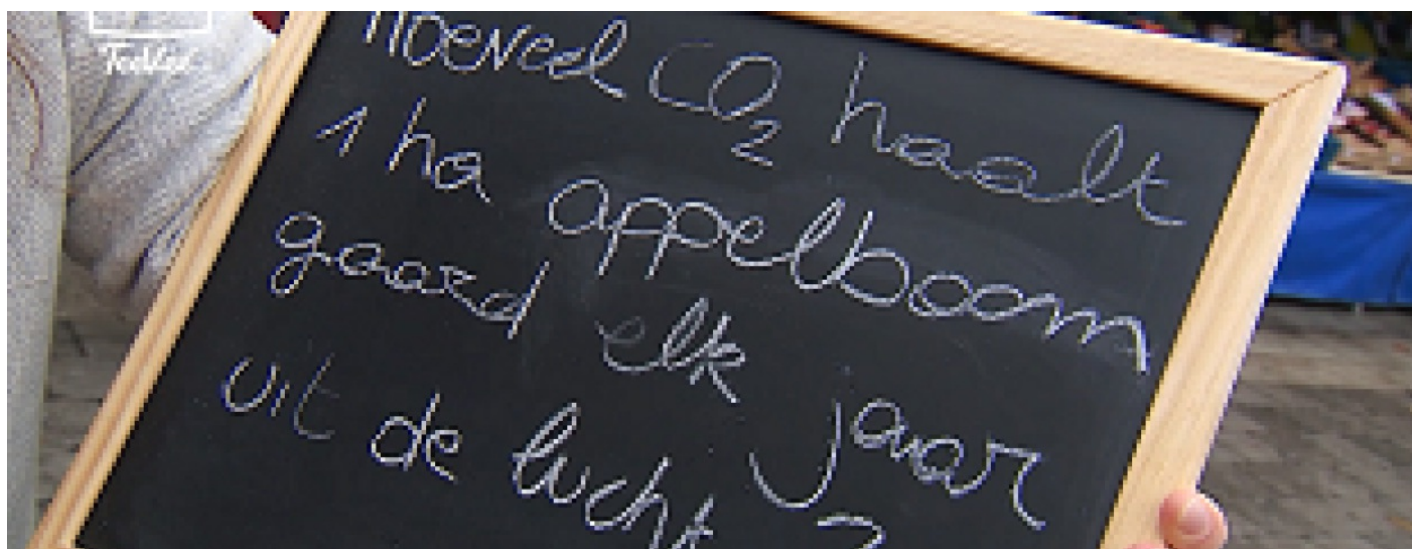 hoeveel CO₂ haalt
1 ha appelboom
gaard elk jaar
uit de lucht ?